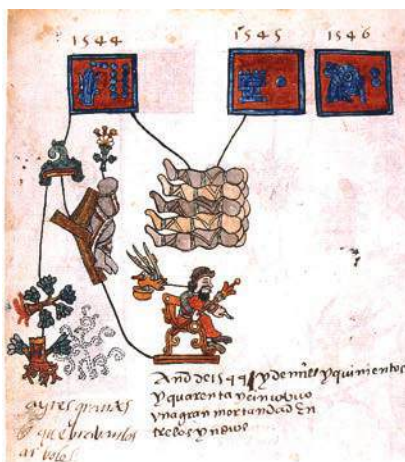 1544
1545
1546
Año de 1544 y de mil y quinientos
y quarenta y cinco uvo
una gran mortandad en
tre los yndios
ayres grandes
que quebravan los
arboles